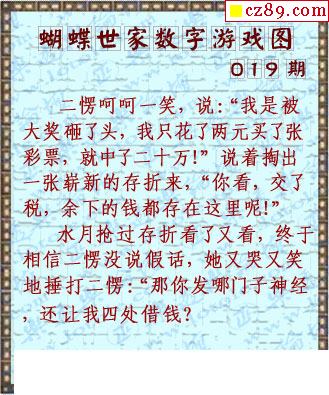 cz89.com
蝴蝶世家数字游戏图
019期
二愣呵呵一笑，说：“我是被
大奖砸了头，我只花了两元买了张
彩票，就中了二十万!”说着掏出
一张崭新的存折来，“你看，交了
税，余下的钱都存在这里呢!”
水月抢过存折看了又看，终于
相信二愣没说假话，她又哭又笑
地捶打二愣：“那你发哪门子神经
，还让我四处借钱?